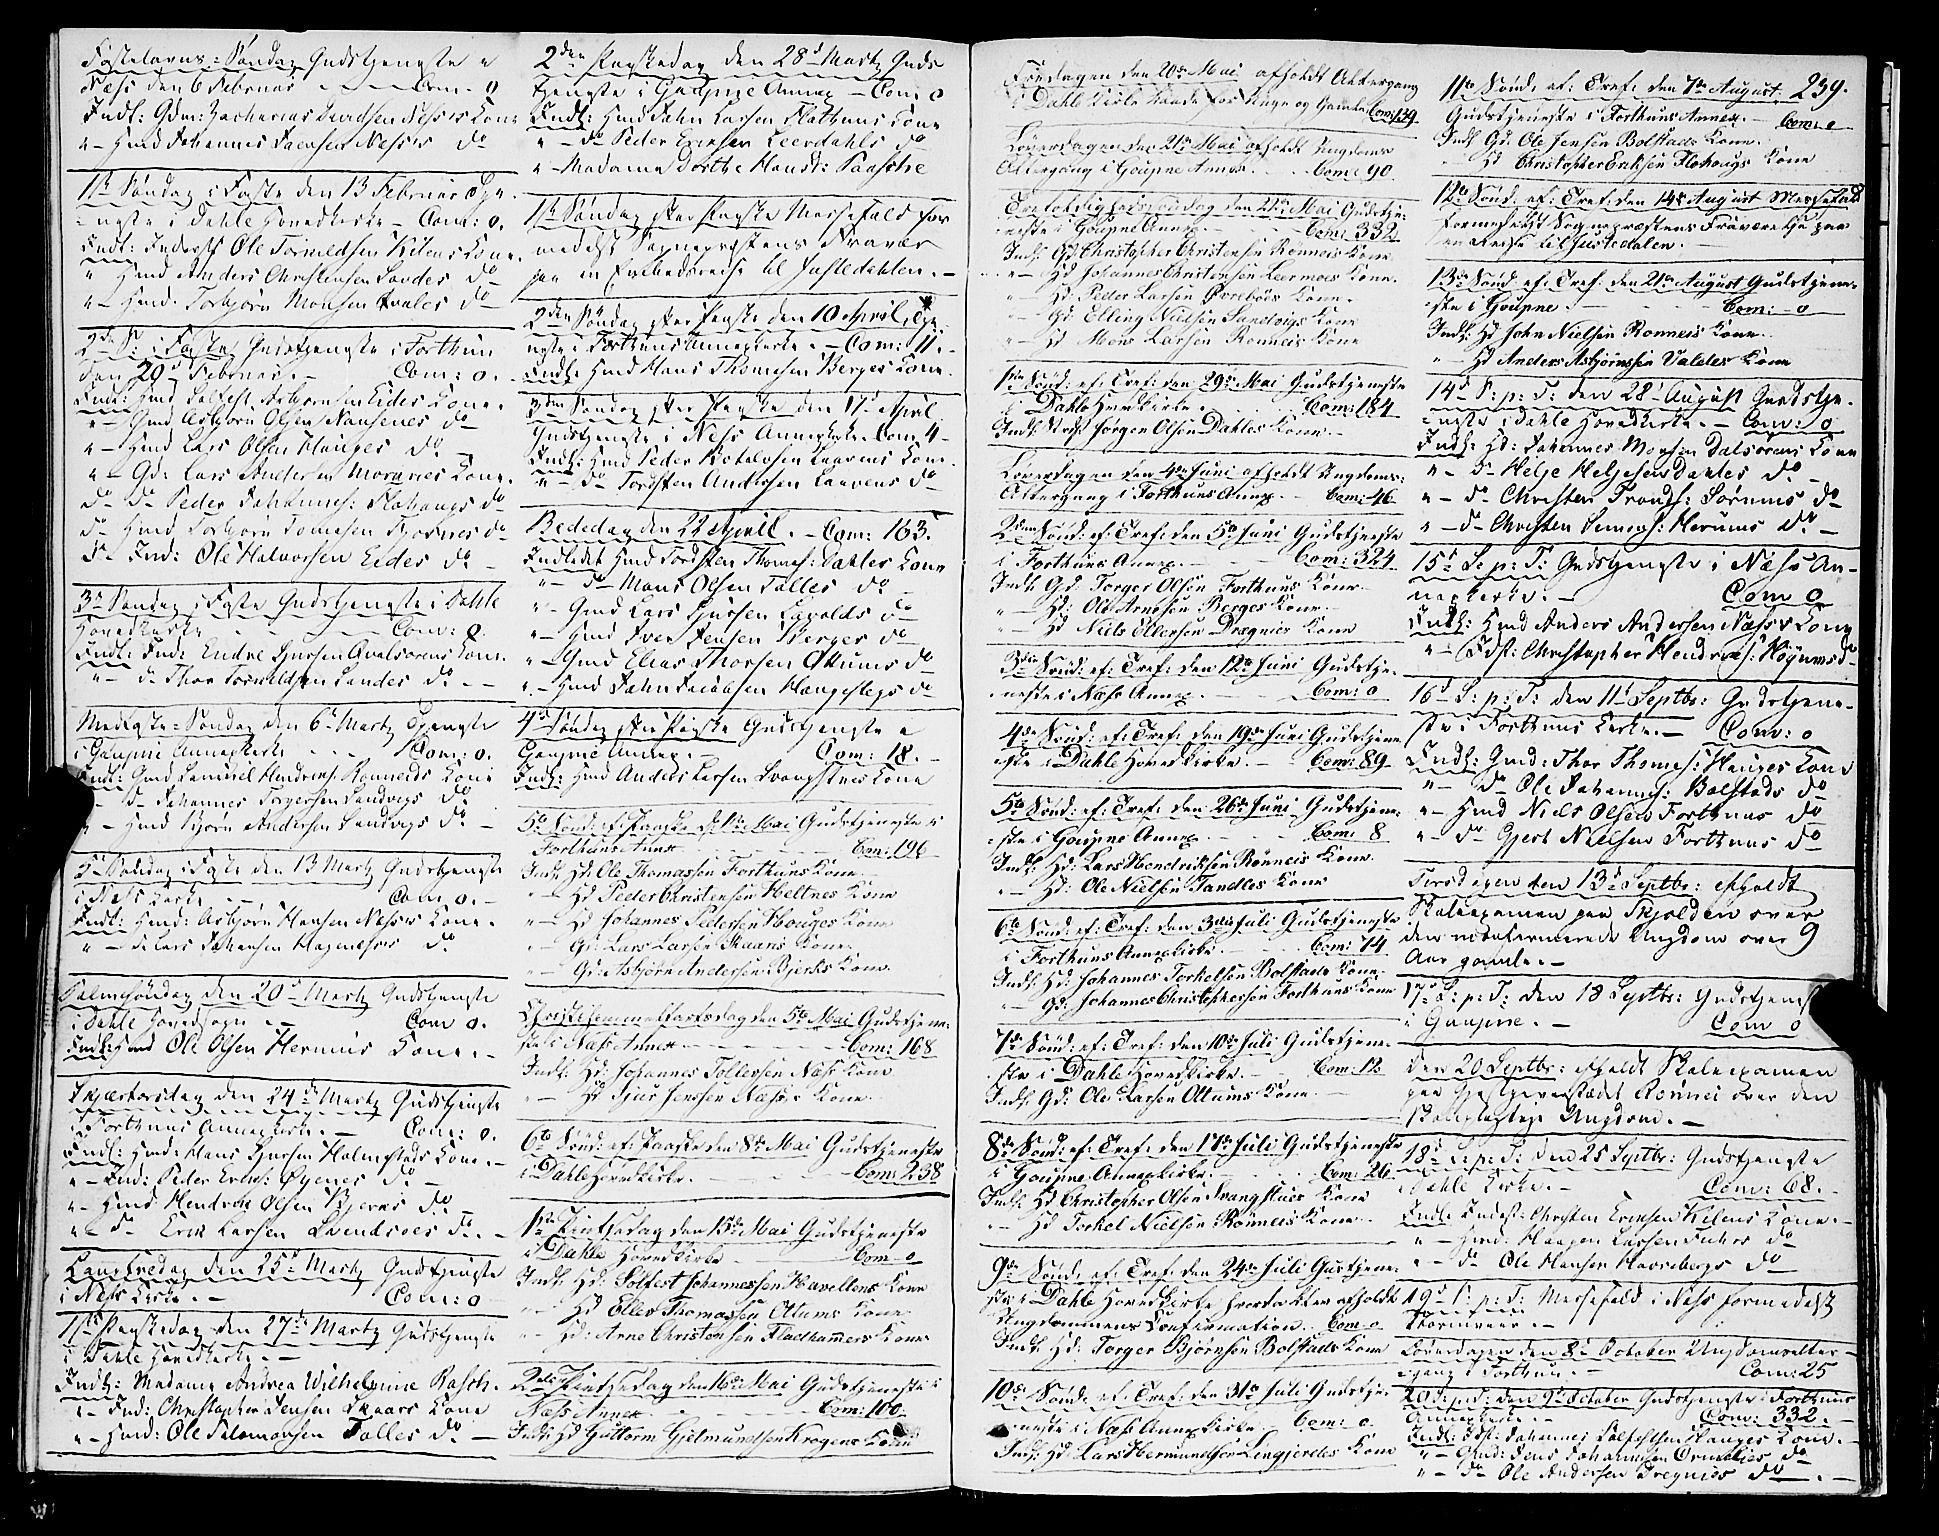 Fastelavns-Søndag Gudstjeneste i
Næss den 6 Februar — Com. 0
Indl: Gdm: Zacharias Næsses Kone
"— Hmd Johannes Jaensen Næsses do
1ste Søndag i Faste den 13 Februar Tje-
neste i Dahle Hovedkirke — Com: 0.
Indl: Inderst Ole Kilens Kone.
" Hmd Anders Christensen Sandes do
"— Hmd. Torbjørn Monsen Kvales do
2den S. i Faste Gudstjeneste i Forthun
den 20de Februar. — Com: 0.
Indl: Hmd Solfest Asbjørnsen Eides Kone.
"— Gmd Asbjørn Olsen do
"— Hmd Lars Olsen Hauges do
"— Gd: Lars Andersen Kone.
do do Peder Johannes: Flohaugs do
do Hmd Torbjørn do
do Ind: Ole Halvorsen Eides do
3de Søndag i Faste Gudstjeneste i Dahle
Hovedkirke — Com: 0.
Indl: Ind: Endre Sjursen Kone.
"— do Thor Sandes do —
Midfaste-Søndag den 6te Marts Tjeneste
i Gaupne Annexkirke — Com: 0.
Indl: Gmd Samuel Hendriks: Rønneids Kone
— do Johannes Torgersen Sandvigs do
"— Hmd Bjørn Andersen Sandvigs do
5te Søndag i Faste den 13 Marts Gudstjeneste
i Næss Kirke — Com 0.
Indl: Hmd: Asbjørn Hansen Næsses Kone.
"— do Lars Johansen do
Palmesøndag den 20de Marts Gudstjeneste
i Dahle Hovedsogn — Com 0.
Indl: Hmd Ole Olsen Kone. —
Skjærtorsdag den 24de Marts Gudstjeneste
i Forthuns Annexkirke. — Com: 0.
Indl: Hmd: Hans Sjursen Holmstads Kone. —
"— Ind: Peder Øyenes do —
"— Hmd Hendrik Olsen do
"— do Erik Larsen do. —
Langfredag den 25de Marts Gudstjeneste
i Næss Kirke — Com: 0
1ste Paaskedag den 27de Marts Gudstjeneste
i Dahle Hovedkirke. —
Indl: Madame Andrea Wilhelmine Rasch.
"— Ind: Christopher Jensen Skaars Kone
"— Hmd: Ole Salomonsen Talles do —
2den Paaskedag den 28de Marts Guds
tjeneste i Gaupne Annex — Com: 0
Indl: Hmd John Larsen Flathuns Kone
"— do Peder Eriksen Leerdahls do
"— Madame Dorthe Paaske
1ste Søndag efter Paaske Messefald for
medelst Sognepræstens Fravær
paa en Embedsreise til Justedahlen. —
2den Søndag efter Paaske den 10 April, Tje-
neste i Forthuns Annexkirke. — Com: 11.
Indl: Hmd Hans Thomesen Berges Kone.
3die Søndag efter Paaske den 17de April
Gudstjeneste i Næss Annexkirke Com: 4 —
Indl: Hmd Peder Botolvsen Kone.
"— do Torsten Andersen do
Bededag den 22 April. — Com: 163.
Indledet Hmd Torsten Thomes: Dahles Kone
"— do Mons Olsen Talles do
"— Gmd Lars Sjursen do
"— Hmd Iver Jensen Berges do
"— Gmd Elias Thorsen Ottums do
"— Hmd John Jacobsen do
4de Søndag efter Paaske Gudstjeneste i
Gaupne Annex. — Com: 18. —
Indl: Hmd Anders Larsen Kone
5te Sønd: ef: Paaske d: 1ste Mai Gudstjeneste i
Forthuns Annex — Com: 196
Indl: Hd: Ole Thomassen Forthuns Kone
"— Hd Peder Christensen Heltnes Kone
"— Hd Johannes Pedersen Houges Kone
"— Gd: Lars Larsen Skaars Kone
"— Gd: Asbjørn Andersen Bjerks Kone.
Christi Himmelfartsdag den 5te Mai Gudstjene-
ste i Næss Annex — Com: 168
Indl: Hd: Johannes Tollefsen Næss Kone
"— Hd Sjur Jensen Næsses Kone
6te Sønd: ef: Paaske den 8de Mai Gudstjeneste
i Dahle Hovedkirke. — Com: 238
1ste Pintsedag den 15de Mai Gudstjeneste
i Dahle Hovedkirke — Com — 0
Indl: Hd: Solfest Johannessen Havellens Kone
"— Hd Ellev Thomassen Ottums Kone
"— Hd: Arne Christensen Fladhammers Kone
2den Pintsedag den 16de Mai Gudstjeneste i
Næss Annex. — Com: 100.
Indl: Hd Guttorm Gjetmundsen Krogens Kone
Fredagen den 20de Mai afholdt Altergang
i Dahle Kirke baade for Unge og Gamle Com: 139.
Løverdagen den 21de Mai afholdt Ungdoms
Altergang i Goupne Annex. — Com: 90.
Trefoldighedssøndag den 22de Mai Gudstje-
neste i Goupne Annex. — Com: 332
Indl: Gd Christopher Christensen Rønneis Kone
"— Hd Johannes Christensen Leermoes Kone.
"— Hd Peder Larsen Øvrebøes Kone.
"— Gd Elling Nielsen Sandvigs Kone
"— Hd Mons Larsen Rønneis Kone
1ste Sønd: ef: Tref: den 29de Mai Gudstjeneste
i Dahle Hovedkirke. — Com: 184
Indl: Jørgen Olsen Dahles Kone. —
Løverdagen den 4de Juni afholdt Ungdoms-
Altergang i Forthuns Annex. — Com: 46
2den Sønd: ef: Tref: den 5te Juni Gudstjeneste
i Forthuns Annex. — Com: 324
Indl: Gd Torger Olsen Forthuns Kone
"— Hd: Ole Arnesen Berges Kone.
"— Hd Niels Ellevsen Drægnies Kone
3die Sønd: ef: Tref: den 12te Juni Gudstje-
neste i Næss Annex. — Com: 0
4de Sønd: ef: Tref: den 19de Juni Gudstjene-
ste i Dahle Hovedkirke. — Com: 89
5te Sønd: ef: Tref: den 26de Juni Gudstjene-
ste i Goupne Annex. — Com: 8
Indl: Hd: Lars Hendriksen Rønneis Kone.
"— Hd: Ole Nielsen Tandles Kone
6te Sønd: ef: Tref: den 3die Juli Gudstjeneste
i Forthuns Annexkirke. — Com: 14
Indl: Hd: Johannes Torkelsen Bolstads Kone
"— Gd: Johannes Christophersen Forthuns Kone
7de Sønd: ef: Tref: den 10de Juli Gudstjene-
ste i Dahle Hovedkirke. — Com: 12
Indl: Gd: Ole Larsen Ottums Kone
8de Sønd: ef: Tref: den 17de Juli Gudstjeneste
i Goupne Annexkirke. — Com: 26
Indl: Hd Christopher Olsen Kone
"— Hd Torkel Nielsen Rønneis Kone
9de Sønd: ef: Tref: den 24de Juli Gudstjene-
ste i Dahle Hovedkirke hvorefter afholdt
Ungdommens Confirmation. Com — 0
Indl: Hd: Torger Bjørnsen Bolstads Kone
10de Sønd: ef: Tref: den 31te Juli Gudstje-
neste i Næss Annexkirke. Com: 0.
Indl: Hd: Lars Hermundsen Lingjerdes Kone
239.
11te Sønd: ef: Tref: den 7de August
Gudstjeneste i Forthuns Annex. — Com: 0
Indl: Gd: Ole Jensen Bolstads Kone.
Hd Christopher Eriksen Flohougs Kone
12te Sønd: ef: Tref: den 14de August Messefald
formedelst Sognepræstens Fraværelse paa
en Reise til Justedalen. —
13de Sønd: ef: Tref: den 21de August Gudstjene-
ste i Goupne. — Com: — 0
Indl: Hd John Nielsen Rønneis Kone
"— Hd Anders Asbjørnsen Valdes Kone
14de S: p: T: den 28de August Gudstje-
neste i Dahle Hovedkirke. — Com: 0
Indl: Hd: Johannes Monsen Dalsørens Kone
"— do Helje Heljesens Dahles do —
"— do Christen Sørnums do
"— do Christen Herums do —
15de S: p: T: Gudstjeneste i Næss An-
nexkirke. — Com 0
Indl: Hmd Anders Andersen Næsses Kone
"— Idst: Christopher Hendriks: do
16de S: p: T: den 11te Septbr: Gudstjene-
ste i Forthuns Kirke. — Com: 0
Indl: Gmd: Thor Thomes: Hauges Kone
"— do Ole Johannes: Bolstads do
"— Hmd Niels Olsen Forthuns do
"— do Gjert Nielsen Forthuns do
Tirsdagen den 13de Septbr: afholdt
Skoleexamen paa Skjolden over
den uconfirmerede Ungdom over 9
Aar gamle. —
17de S: p: T: den 18 Septbr: Gudstjeneste
i Gaupne. — Com 0
Den 20 Septbr: afholdt Skoleexamen
paa Gjestgiverstedet Rønnei over den
skolepligtige Ungdom. —
18de S: p: T: den 25 Septbr: Gudstjeneste
i Dahle Kirke. — Com: 68. —
Indl: Inderst: Christen Eriksen Kilens Kone. —
"— Hmd: Haagen Larsen do
"— do Ole Hansen do —
19de S: p: T: Messefald i Næss formedelst
Stormveir. —
Løverdagen den 8de October Ungdomsalter-
gang i Forthun. — Com: 25
20de S: p: T: den 9de October Gudstjeneste i Forthuns
Annexkirke. — Com: 332. —
Indl: Idst: Johannes Solfestsen Hauges Kone. —
"— Gmd: Jens Johannesen Ormelies do
"— do Ole Andersen Dregnies do —